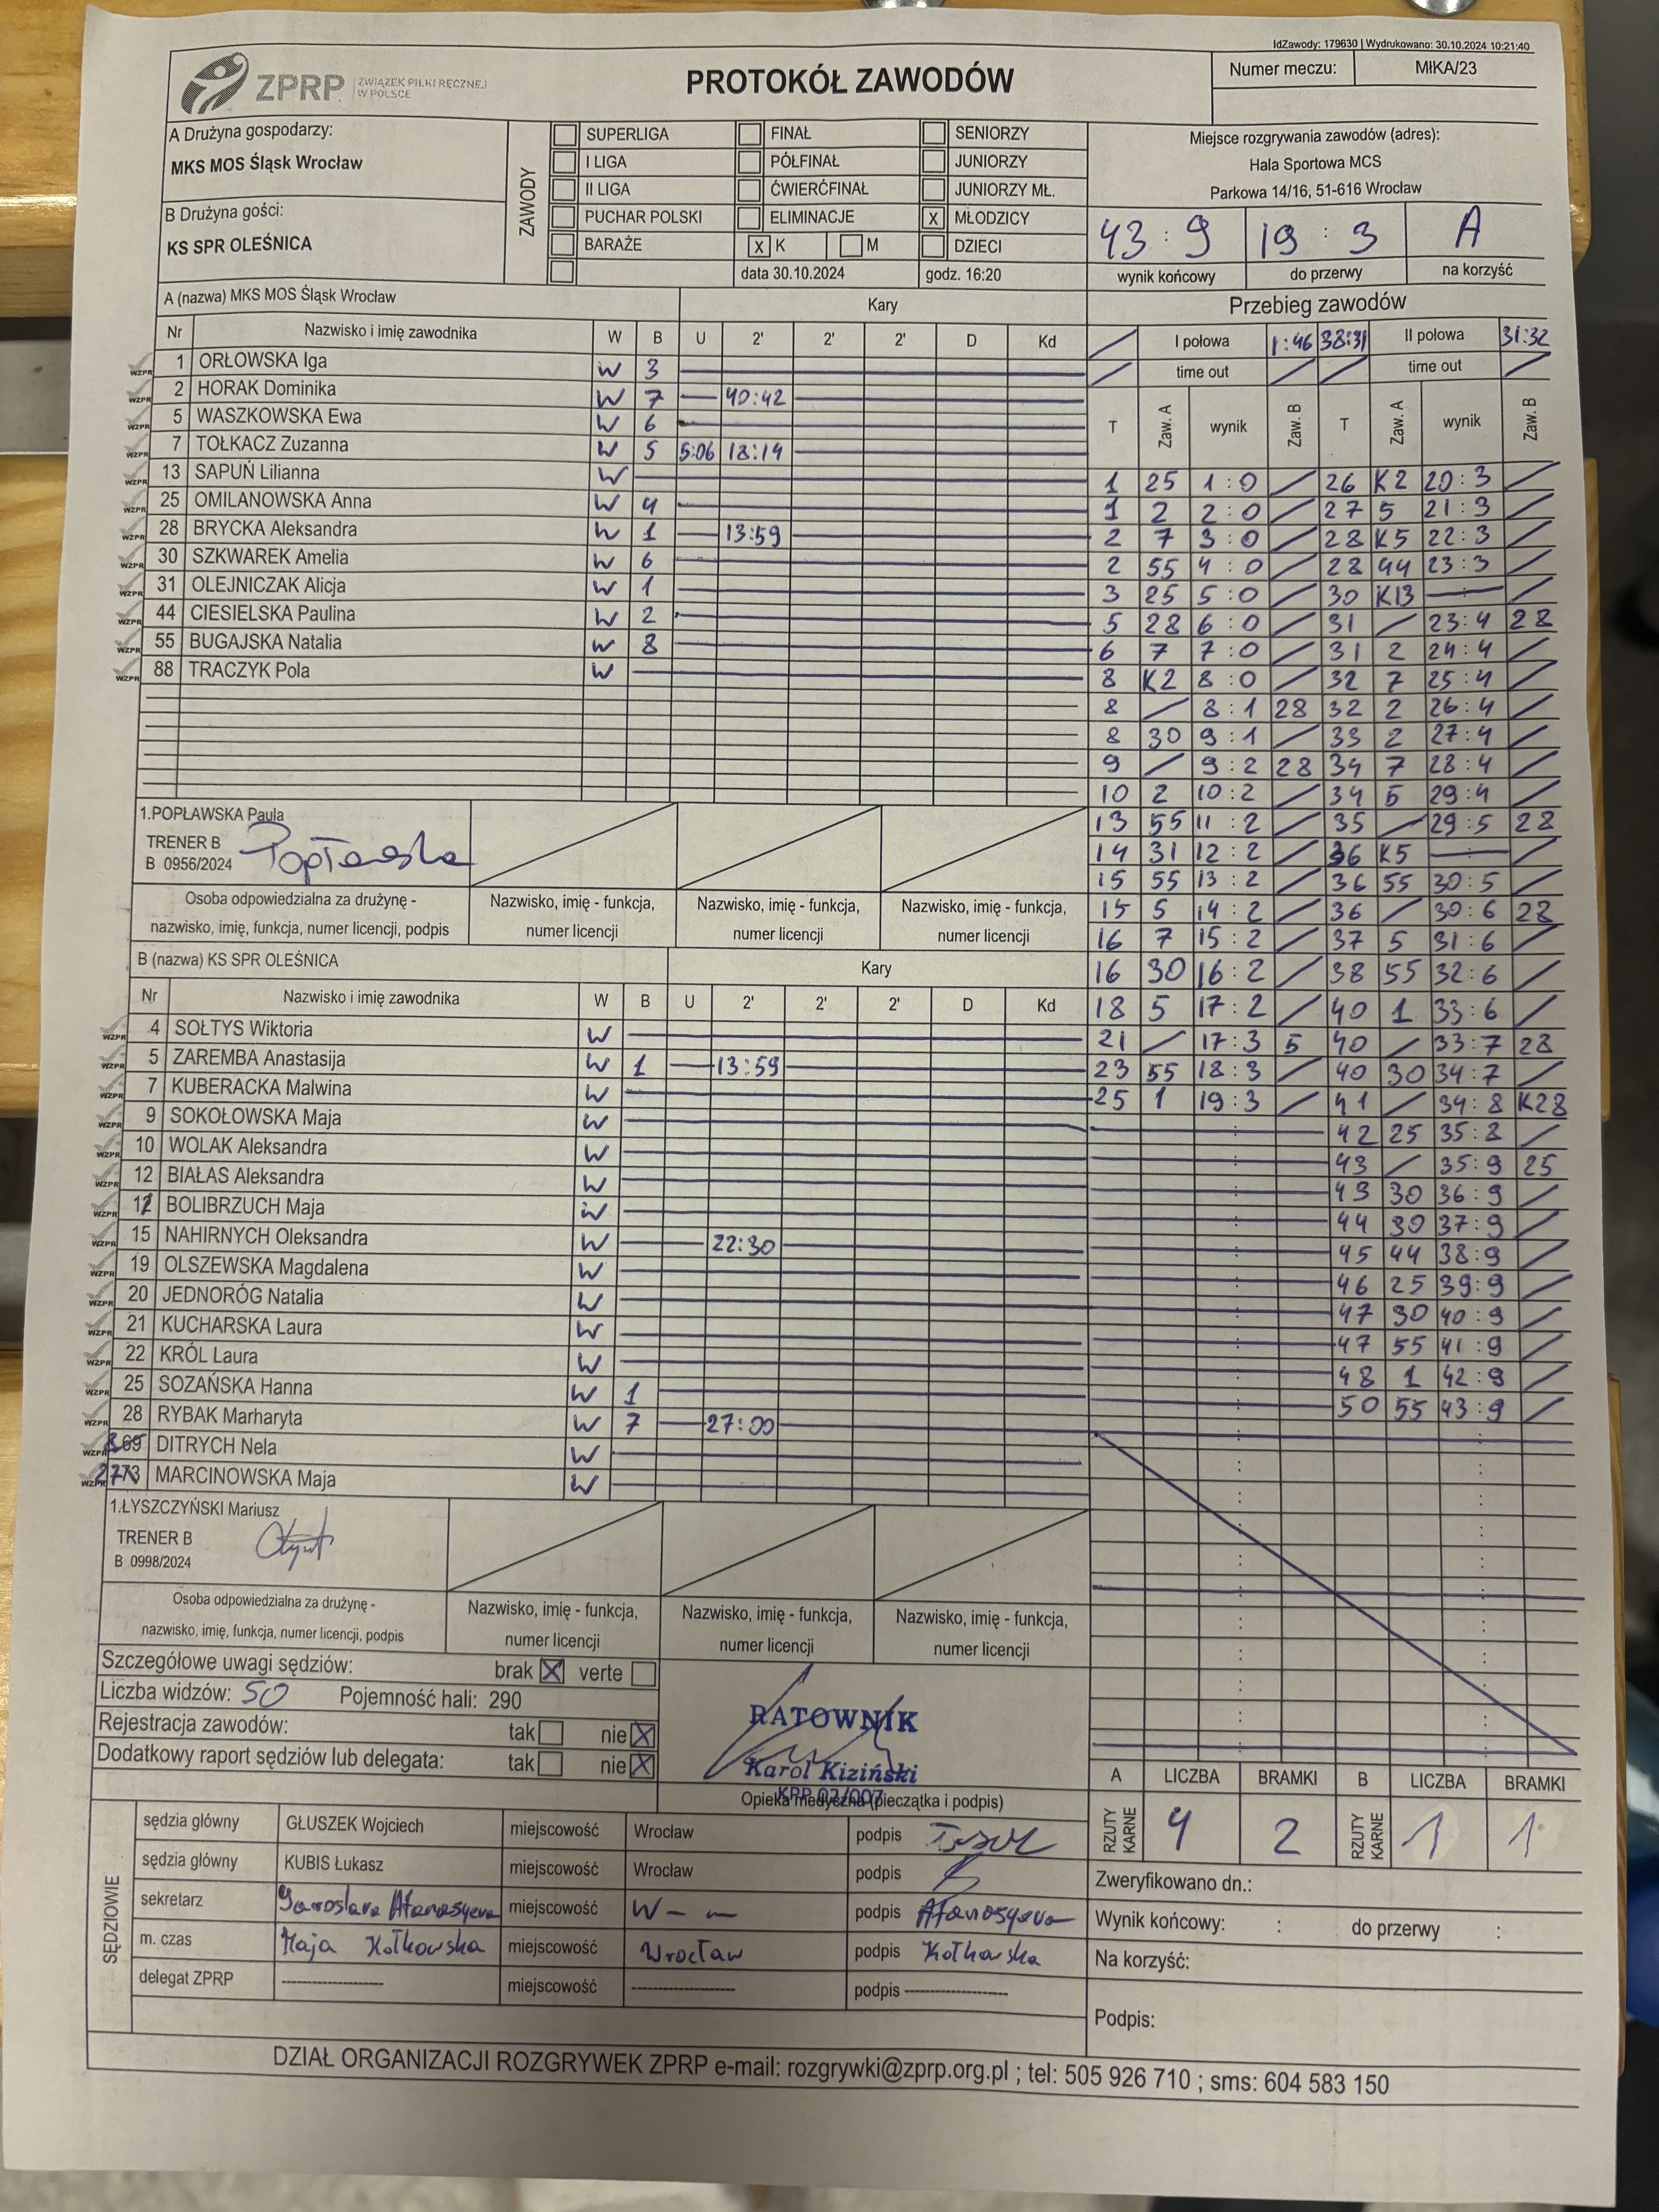 IdZawody: 179630 | Wydrukowano: 30.10.2024 10:21:40
ZPRP ZWIĄZEK PIŁKI RĘCZNEJ W POLSCE
PROTOKÓŁ ZAWODÓW
Numer meczu: MłKA/23
A Drużyna gospodarzy:
MKS MOS Śląsk Wrocław
B Drużyna gości:
KS SPR OLEŚNICA
ZAWODY
SUPERLIGA FINAŁ SENIORZY
I LIGA PÓŁFINAŁ JUNIORZY
II LIGA ĆWIERĆFINAŁ JUNIORZY MŁ.
PUCHAR POLSKI ELIMINACJE X MŁODZICY
BARAŻE X K M DZIECI
data 30.10.2024 godz. 16:20
Miejsce rozgrywania zawodów (adres):
Hala Sportowa MCS
Parkowa 14/16, 51-616 Wrocław
43 : 9 19 : 3 A
wynik końcowy do przerwy na korzyść
A (nazwa) MKS MOS Śląsk Wrocław Kary
Nr Nazwisko i imię zawodnika W B U 2' 2' 2' D Kd
1 ORŁOWSKA Iga W 3
2 HORAK Dominika W 7 40:42
5 WASZKOWSKA Ewa W 6
7 TOŁKACZ Zuzanna W 5 5:06 18:14
13 SAPUŃ Lilianna W
25 OMILANOWSKA Anna W 4
28 BRYCKA Aleksandra W 1 13:59
30 SZKWAREK Amelia W 6
31 OLEJNICZAK Alicja W 1
44 CIESIELSKA Paulina W 2
55 BUGAJSKA Natalia W 8
88 TRACZYK Pola W
1.POPŁAWSKA Paula
TRENER B
B 0956/2024 Popławska
Osoba odpowiedzialna za drużynę -
nazwisko, imię, funkcja, numer licencji, podpis
Nazwisko, imię - funkcja,
numer licencji
Nazwisko, imię - funkcja,
numer licencji
Nazwisko, imię - funkcja,
numer licencji
B (nazwa) KS SPR OLEŚNICA Kary
Nr Nazwisko i imię zawodnika W B U 2' 2' 2' D Kd
4 SOŁTYS Wiktoria W
5 ZAREMBA Anastasija W 1 13:59
7 KUBERACKA Malwina W
9 SOKOŁOWSKA Maja W
10 WOLAK Aleksandra W
12 BIAŁAS Aleksandra W
BOLIBRZUCH Maja W
15 NAHIRNYCH Oleksandra W 22:30
19 OLSZEWSKA Magdalena W
20 JEDNORÓG Natalia W
21 KUCHARSKA Laura W
22 KRÓL Laura W
25 SOZAŃSKA Hanna W 1
28 RYBAK Marharyta W 7 27:00
DITRYCH Nela W
MARCINOWSKA Maja W
1.ŁYSZCZYŃSKI Mariusz
TRENER B
B 0998/2024
Osoba odpowiedzialna za drużynę -
nazwisko, imię, funkcja, numer licencji, podpis
Nazwisko, imię - funkcja,
numer licencji
Nazwisko, imię - funkcja,
numer licencji
Nazwisko, imię - funkcja,
numer licencji
Przebieg zawodów
I połowa 1:46 38:31 II połowa 31:32
time out time out
T Zaw. A wynik Zaw. B T Zaw. A wynik Zaw. B
1 25 1:0 26 K2 20:3
1 2 2:0 27 5 21:3
2 7 3:0 28 K5 22:3
2 55 4:0 28 44 23:3
3 25 5:0 30 K13
5 28 6:0 31 23:4 28
6 7 7:0 31 2 24:4
8 K2 8:0 32 7 25:4
8 8:1 28 32 2 26:4
8 30 9:1 33 2 27:4
9 9:2 28 34 7 28:4
10 2 10:2 34 5 29:4
13 55 11:2 35 29:5 28
14 31 12:2 36 K5
15 55 13:2 36 55 30:5
15 5 14:2 36 30:6 28
16 7 15:2 37 5 31:6
16 30 16:2 38 55 32:6
18 5 17:2 40 1 33:6
21 17:3 5 40 33:7 28
23 55 18:3 40 30 34:7
25 1 19:3 41 34:8 K28
42 25 35:8
43 35:9 25
43 30 36:9
44 30 37:9
45 44 38:9
46 25 39:9
47 30 40:9
47 55 41:9
48 1 42:9
50 55 43:9
Szczegółowe uwagi sędziów: brak X verte
Liczba widzów: 50 Pojemność hali: 290
Rejestracja zawodów: tak nie X
Dodatkowy raport sędziów lub delegata: tak nie X
RATOWNIK
Karol Kiziński
Opieka medyczna (pieczątka i podpis)
A LICZBA BRAMKI B LICZBA BRAMKI
RZUTY KARNE 4 2 RZUTY KARNE 1 1
SĘDZIOWIE
sędzia główny GŁUSZEK Wojciech miejscowość Wrocław podpis
sędzia główny KUBIS Łukasz miejscowość Wrocław podpis
sekretarz Yaroslava Afanasyeva miejscowość W- — podpis Afanasyeva
m. czas Maja Kotkowska miejscowość Wrocław podpis Kotkowska
delegat ZPRP ------------------- miejscowość ------------------- podpis -------------------
Zweryfikowano dn.:
Wynik końcowy: : do przerwy :
Na korzyść:
Podpis:
DZIAŁ ORGANIZACJI ROZGRYWEK ZPRP e-mail: rozgrywki@zprp.org.pl ; tel: 505 926 710 ; sms: 604 583 150